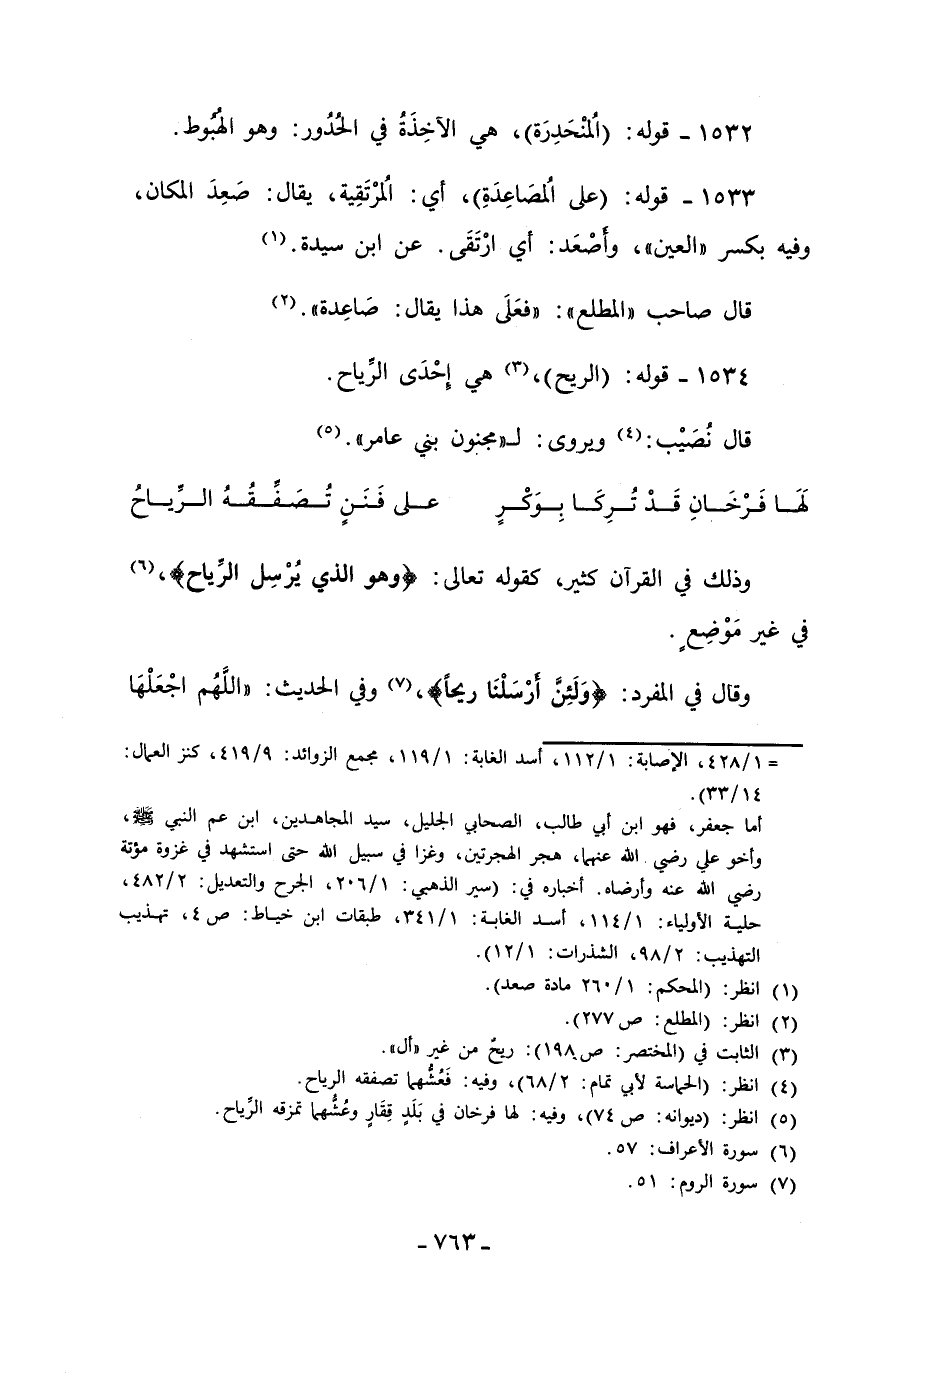 ١٥٣٢ ـ قوله: (اُلمْنْحَدِرَة)، هي الآخِذَةُ في الحُدُور: وهو الهُبُوط.
١٥٣٣ ـ قوله: (على اُلمصَاعِدَةِ)، أي: اُلمرْتَقِية، يقال: صَعِدَ المكان،
وفيه بكسر «العين»، وأَصْعَد: أي ارْتَقَى. عن ابن سيدة.(١)
قال صاحب «المطلع»: «فعَلَى هذا يقال: صَاعِدة».(٢)
١٥٣٤ ـ قوله: (الريح)،(٣) هي إِحْدَى الرِّياح.
قال نُصَيْب:(٤) ويروى: لـ«مجنون بني عامر».(٥)
لَهَـا فَـرْخَـانِ قَـدْ تُـرِكَـا بِـوَكْـرٍ علـى فَـنَـنٍ تُـصَـفِّـقُـهُ الـرِّيـاحُ
وذلك في القرآن كثير، كقوله تعالى: ﴿وهو الذي يُرْسِل الرِّياح﴾،(٦)
في غير مَوْضِعٍ.
وقال في المفرد: ﴿وَلَئِنَّ أَرْسَلْنَا ريحاً﴾،(٧) وفي الحديث: «اللَّهُم اجْعَلْهَا
= ٤٢٨/١، الإصابة: ١١٢/١، أسد الغابة: ١١٩/١، مجمع الزوائد: ٤١٩/٩، كنز العمال:
٣٣/١٤).
أما جعفر، فهو ابن أبي طالب، الصحابي الجليل، سيد المجاهدين، ابن عم النبي ﷺ،
وأخو علي رضي الله عنهما، هجر الهجرتين، وغزا في سبيل الله حتى استشهد في غزوة مؤتة
رضي الله عنه وأرضاه. أخباره في: (سير الذهبي: ٢٠٦/١، الجرح والتعديل: ٤٨٢/٢،
حلية الأولياء: ١١٤/١، أسد الغابة: ٣٤١/١، طبقات ابن خياط: ص ٤، تهذيب
التهذيب: ٩٨/٢، الشذرات: ١٢/١).
(١) انظر: (المحكم: ٢٦٠/١ مادة صعد).
(٢) انظر: (المطلع: ص ٢٧٧).
(٣) الثابت في (المختصر: ص ١٩٨): ريحٌ من غير «أل».
(٤) انظر: (الحماسة لأبي تمام: ٦٨/٢)، وفيه: فَعُشُّهما تصفقه الرياح.
(٥) انظر: (ديوانه: ص ٧٤)، وفيه: لها فرخان في بَلَدٍ قِفَارٍ وعُشُّهما تمزقه الرِّياح.
(٦) سورة الأعراف: ٥٧.
(٧) سورة الروم: ٥١.
ـ ٧٦٣ ـ